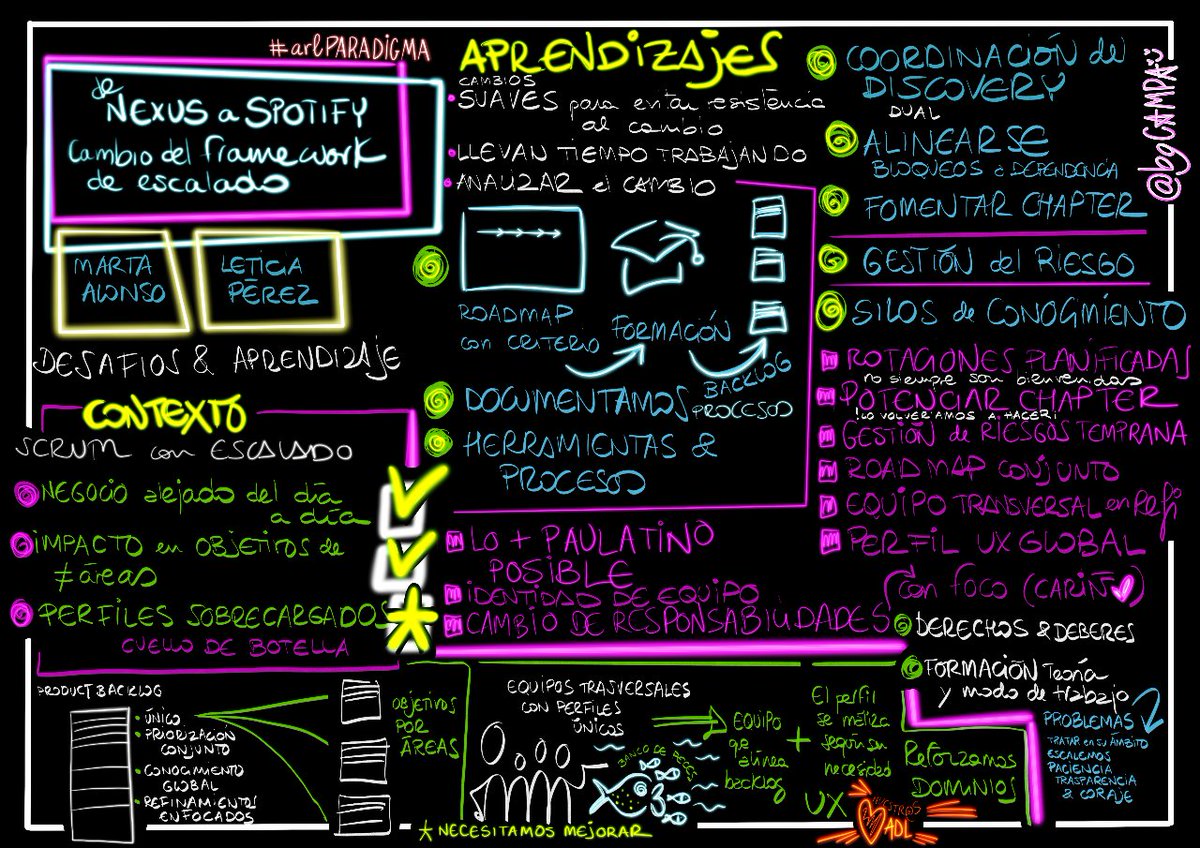 #arlPARADIGMA
de
NEXUS a SPOTIFY
Cambio del framework
de escalado
MARTA
ALONSO
LETICIA
PÉREZ
DESAFIOS & APRENDIZAJE
CONTEXTO
SCRUM con ESCALADO
NEGOCIO alejado del día
a día
IMPACTO en OBJETIVOS de
≠ áreas
PERFILES SOBRECARGADOS
CUELLO DE BOTELLA
APRENDIZAJES
CAMBIOS
SUAVES para evitar resistencia
al cambio
LLEVAN TIEMPO TRABAJANDO
ANALIZAR el CAMBIO
ROADMAP
con CRITERIO
FORMACIÓN
BACKLOG
PROCESOS
DOCUMENTAMOS
HERRAMIENTAS &
PROCESOS
LO + PAULATINO
POSIBLE
IDENTIDAD DE EQUIPO
CAMBIO DE RESPONSABILIDADES
COORDINACIÓN del
DISCOVERY
DUAL
ALINEARSE
BLOQUEOS o DEPENDENCIA
FOMENTAR CHAPTER
GESTIÓN del RIESGO
SILOS de CONOCIMIENTO
ROTACIONES PLANIFICADAS
no siempre son bienvenidas
POTENCIAR CHAPTER
¡LO VOLVERÍAMOS A HACER!
GESTIÓN de RIESGOS TEMPRANA
ROAD MAP CONJUNTO
EQUIPO TRANSVERSAL en Refi
PERFIL UX GLOBAL
con foco (CARIÑ♥)
DERECHOS & DEBERES
FORMACIÓN Teoría
y modo de trabajo
PROBLEMAS
TRATAR en su ÁMBITO
ESCALEMOS
PACIENCIA
TRASPARENCIA
& CORAJE
@bgCAMPA
PRODUCT BACKLOG
ÚNICO
PRIORIZACIÓN
CONJUNTO
CONOCIMIENTO
GLOBAL
REFINAMIENTOS
ENFOCADOS
OBJETIVOS
POR
ÁREAS
EQUIPOS TRASVERSALES
CON PERFILES
ÚNICOS
BANCO DE PECES
EQUIPO
qe alinea
backlog
+
El perfil
se matiza
según su
necesidad
UX
Reforzamos
DOMINIOS
NOSOTROS
ADL
* NECESITAMOS MEJORAR